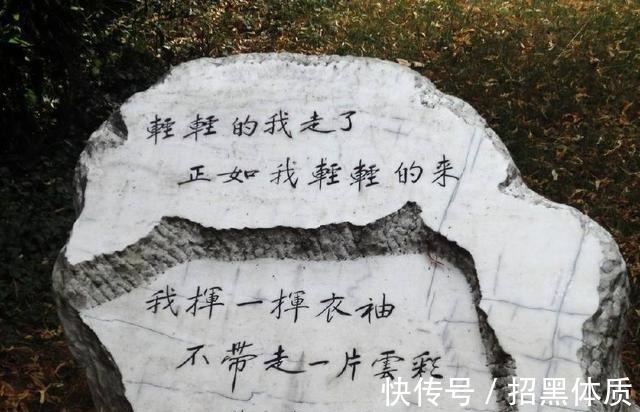 輕輕的我走了
正如我輕輕的来
我揮一揮衣袖
不帶走一片雲彩
快传号／招黑体质